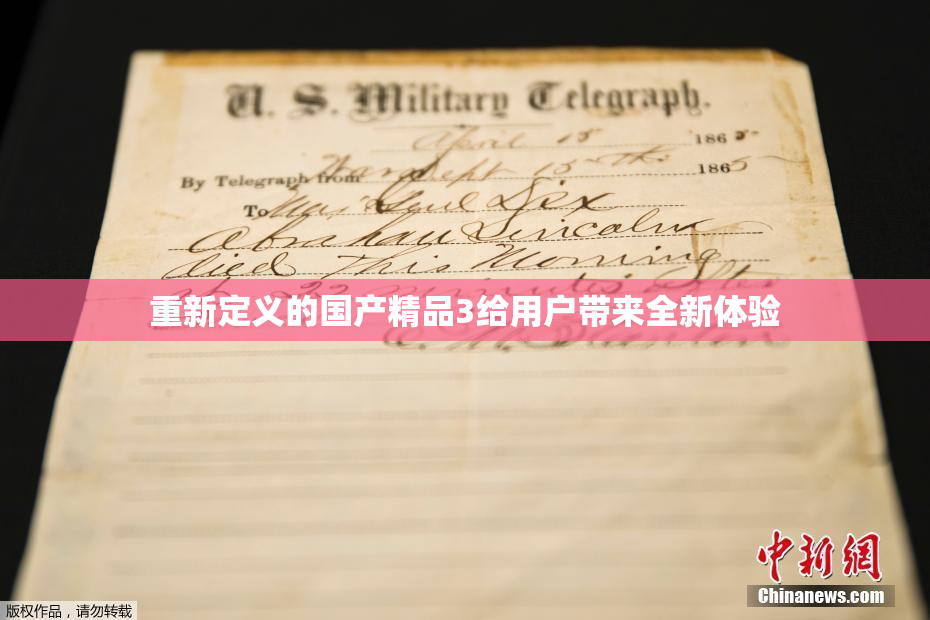 U. S. Military Telegraph.
April 15 1865
By Telegraph from War Dept 15th 1865
To Maj Genl Dix
Abraham Lincoln
died This Morning
at 22 minutes after
重新定义的国产精品3给用户带来全新体验
E. M. Stanton
中新网
Chinanews.com
版权作品，请勿转载